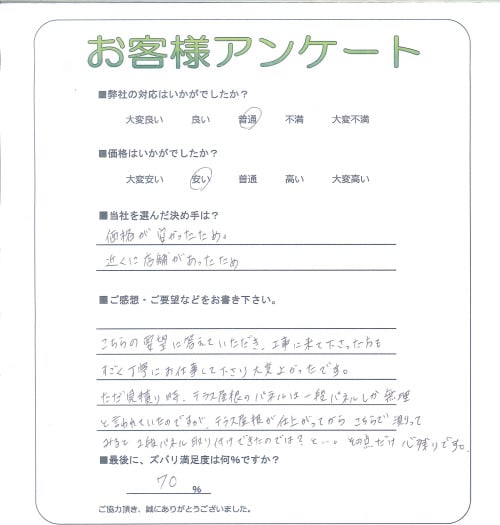 お客様アンケート
■弊社の対応はいかがでしたか？
大変良い 良い 普通 不満 大変不満
■価格はいかがでしたか？
大変安い 安い 普通 高い 大変高い
■当社を選んだ決め手は？
価格が良かったため。
近くに店舗があったため
■ご感想・ご要望などをお書き下さい。
こちらの要望に答えていただき、工事に来て下さった方も
すごく丁寧にお仕事して下さり大変よかったです。
ただ見積り時、テラス屋根のパネルは一段パネルしか無理
と言われていたのですが、テラス屋根が仕上がってから こちらで測って
みると 2段パネル取り付けできたのでは？と…。その点だけ心残りです。
■最後に、ズバリ満足度は何%ですか？
70 %
ご協力頂き、誠にありがとうございました。